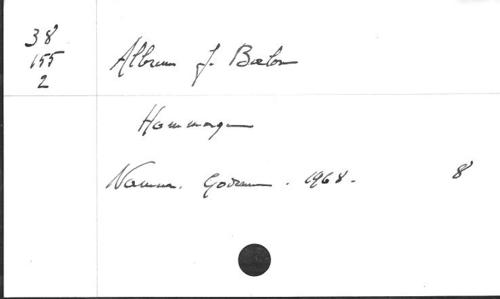 38
155
2
Album J. Balon
Hommage
Namur. Godenne. 1968.
8